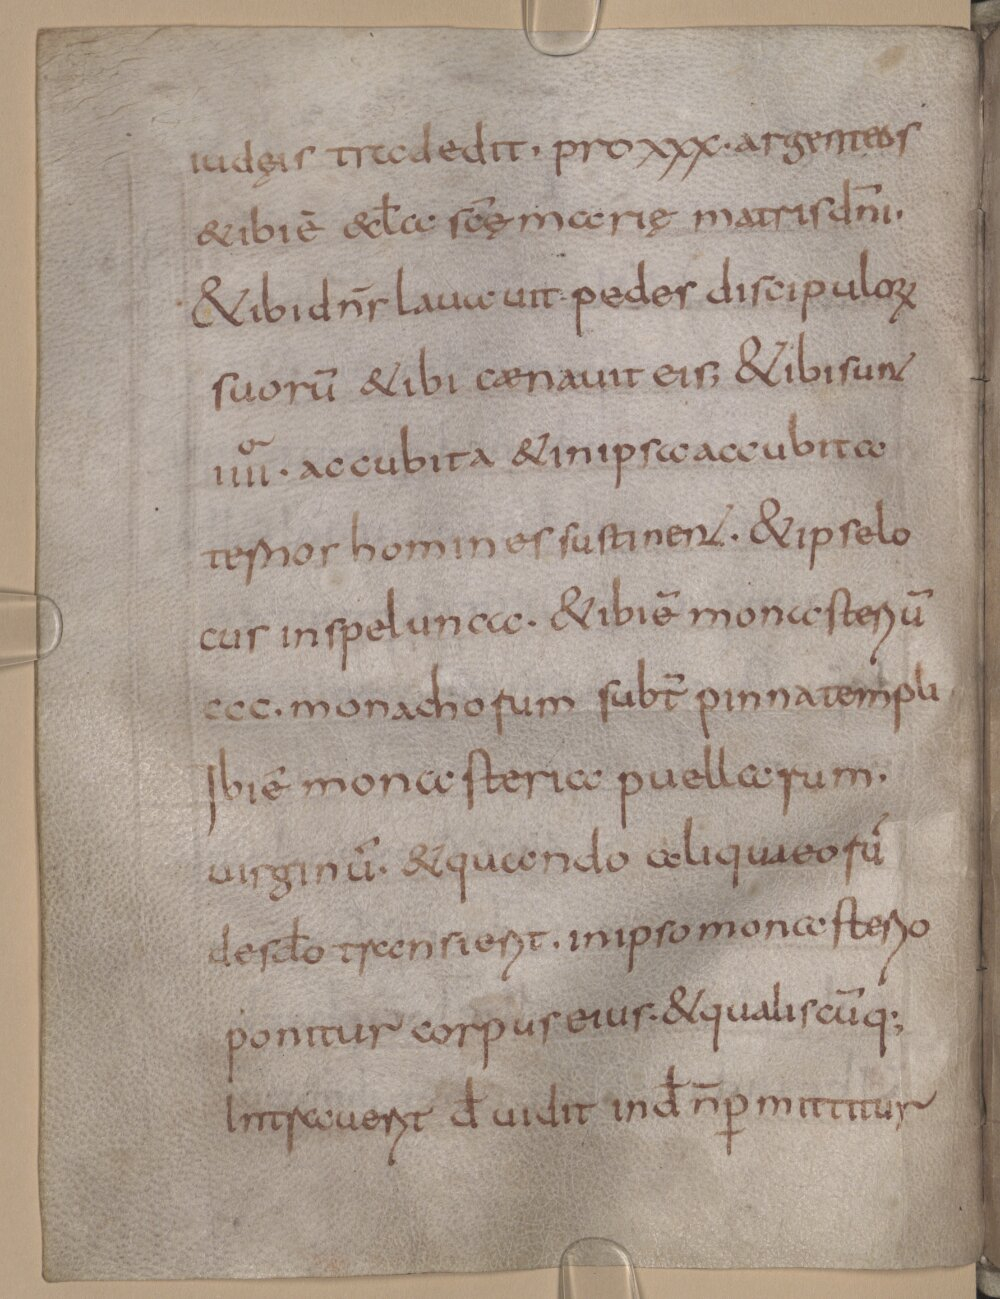 iudęis tradedit. pro xxx. argenteos
& ibi ē &cl̄a scę̄ marię matris dn̄i.
& ibi dn̄s lauauit pedes discipuloꝝ
suorū & ibi cænauit eis, & ibi sunt
iiiior. accubita & in ipsa accubita
ternos homines sustinent. & ipse lo
cus in spelunca. & ibi ē monasteriū
ccc. monachorum subt̄ pinna templi
Ibi ē monasteria puellarum.
uirginū. & quando aliqua eorū
de scl̄o transierit. in ipso monasterio
ponitur corpus eius. & qualiscūq;
Intrauerit đ uidit inđ n̄ ꝑmittitur